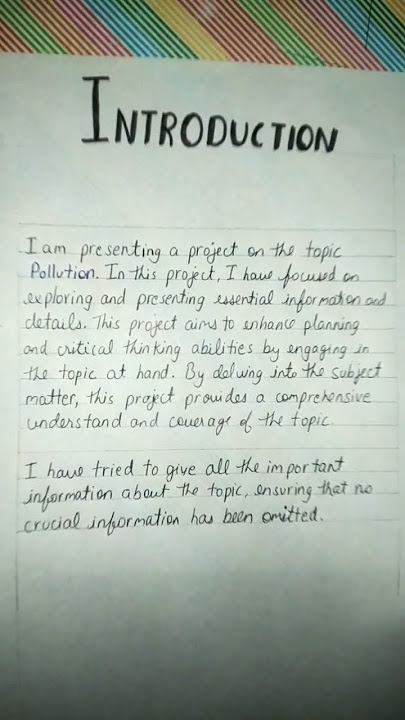 INTRODUCTION
I am presenting a project on the topic
Pollution. In this project, I have focused on
exploring and presenting essential information and
details. This project aims to enhance planning
and critical thinking abilities by engaging in
the topic at hand. By delving into the subject
matter, this project provides a comprehensive
understand and coverage of the topic.
I have tried to give all the important
information about the topic, ensuring that no
crucial information has been omitted.